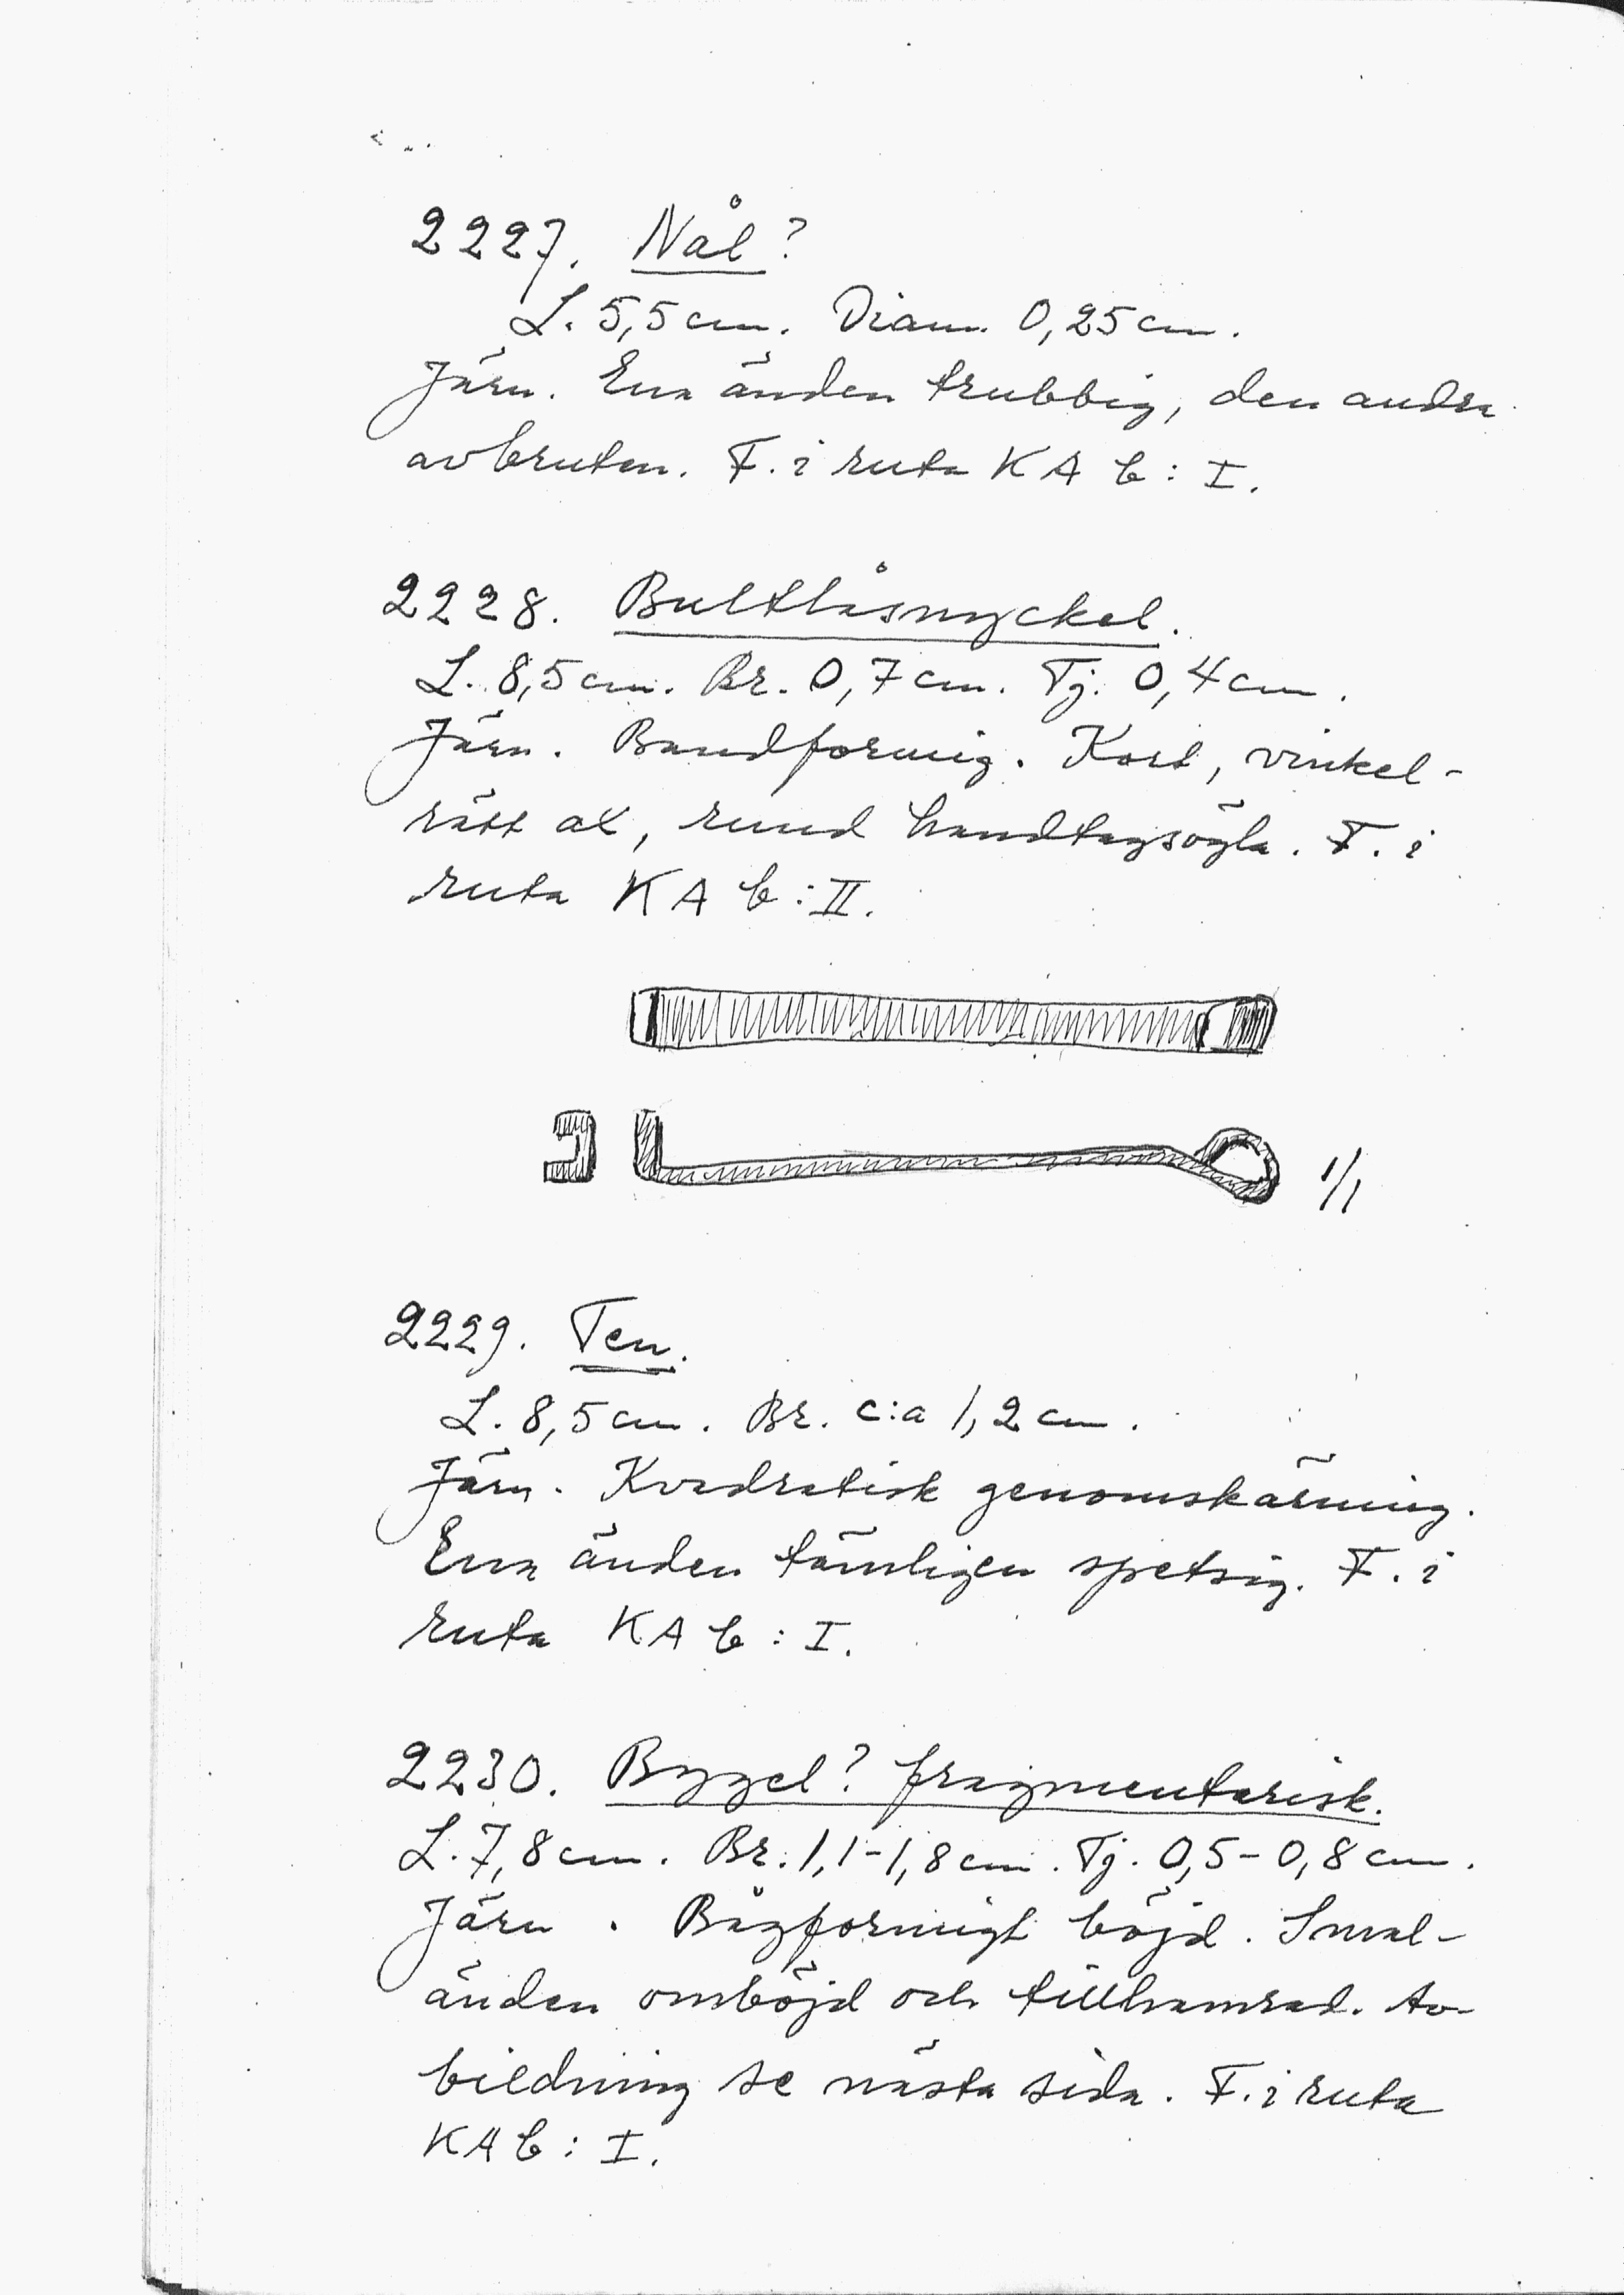 2227. Nål?
L. 5,5 cm. Diam. 0,25 cm.
Järn. Ena änden trubbig, den andra
avbruten. F. i ruta KA b: I.
2228. Bultlåsnyckel.
L. 8,5 cm. Br. 0,7 cm. Tj. 0,4 cm.
Järn. Bandformig. Kort, vinkel-
rätt ax, rund handtagsögla. F. i
ruta KA b: II.
1/1
2229. Ten.
L. 8,5 cm. Br. c:a 1,2 cm.
Järn. Kvadratisk genomskärning.
Ena änden tämligen spetsig. F. i
ruta KA b: I.
2230. Bygel? fragmentarisk.
L. 7,8 cm. Br. 1,1-1,8 cm. Tj. 0,5-0,8 cm.
Järn. Bågformigt böjd. Smal-
änden omböjd och tillhamrad. Av-
bildning se nästa sida. F. i ruta
KA b: I.